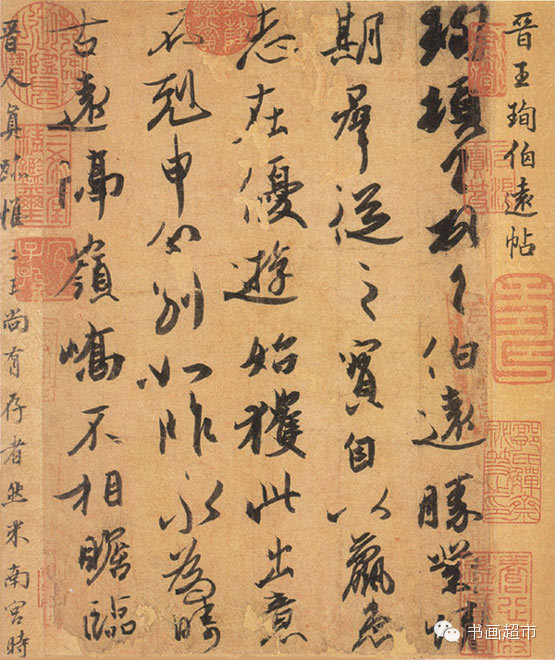 晉王珣伯遠帖
珣頓首頓首伯遠勝業情
期羣從之寶自以羸患
志在優遊始獲此出意
不剋申分別如昨永為疇
古遠隔嶺嶠不相瞻臨
晉人真跡惟二王尚有存者然米南宮時
书画超市